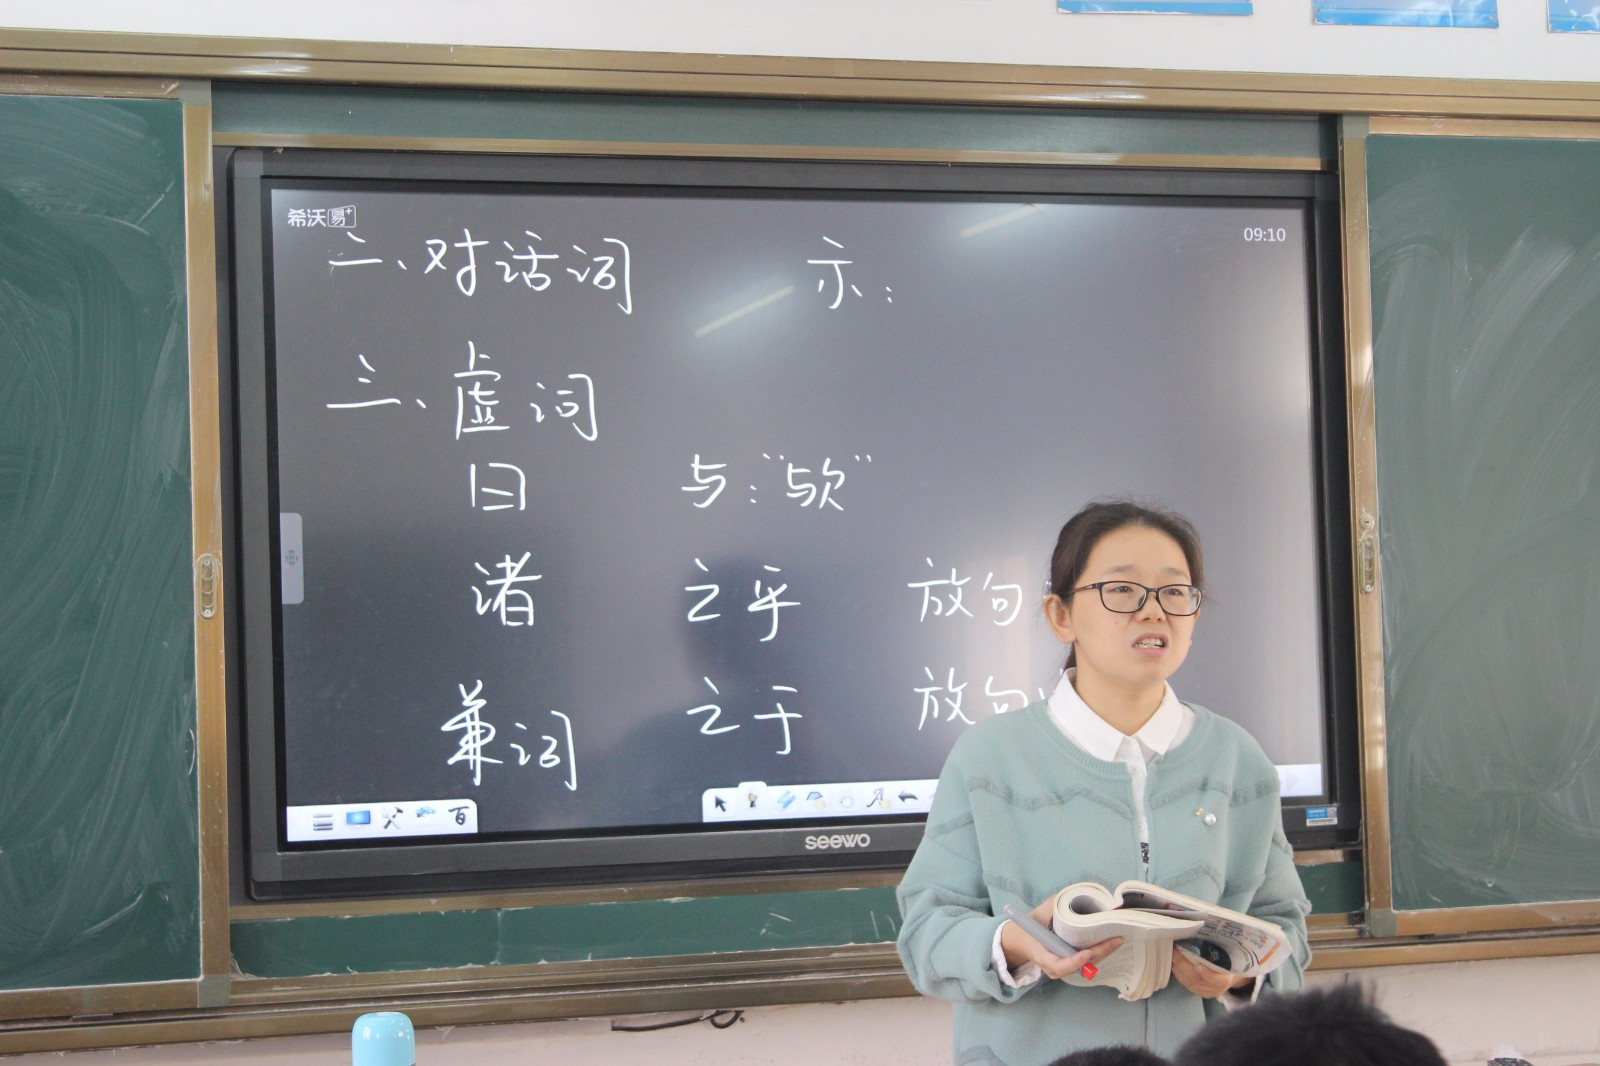 希沃易+
09:10
二、对话词 示：
三、虚词
曰 与："欤"
渚 之乎 放句
兼词 之于 放句
seewo